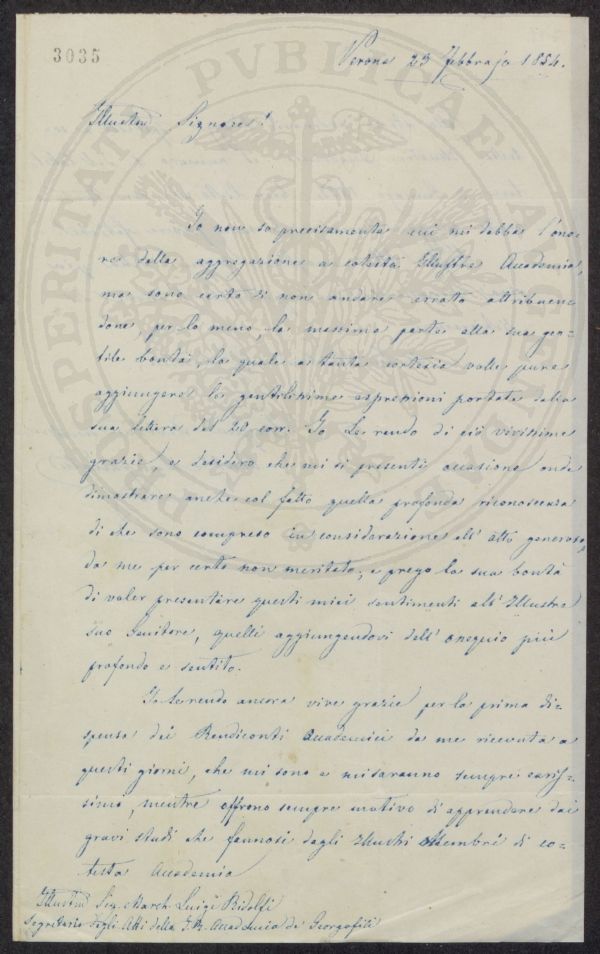 3035
Verona 23 febbrajo 1854.
Illustmo Signore!
Io non so precisamente cui mi debba l'ono=
re della aggregazione a cotesta Illustre Accademia,
ma sono certo di non andare errato attribuen=
done, per lo meno, la massima parte alla sua gen=
tile bontà, la quale a tanta cortesia volle pure
aggiungere le gentilissime espressioni portate dalla
sua lettera del 20 corr. Io Le rendo di ciò vivissime
grazie, e desidero che mi si presenti occasione onde
dimostrare anche col fatto quella profonda riconoscenza
di che sono compreso in considerazione all'atto generoso,
da me per certo non meritato; e prego la sua bontà
di voler presentare questi miei sentimenti all'Illustre
suo Genitore, quelli aggiungendovi dell'ossequio più
profondo e sentito.
Io Le rendo ancora vive grazie per la prima di=
spensa dei Rendiconti Accademici da me ricevuta a
questi giorni, che mi sono e mi saranno sempre caris=
simi, mentre offrono sempre motivo di apprendere dai
gravi studi che fannosi dagli Illustri Membri di co=
testa Accademia
Illustmo Sig. March. Luigi Ridolfi
Segretario degli Atti della I. R. Accademia de' Georgofili
PROSPERITATI PVBLICAE